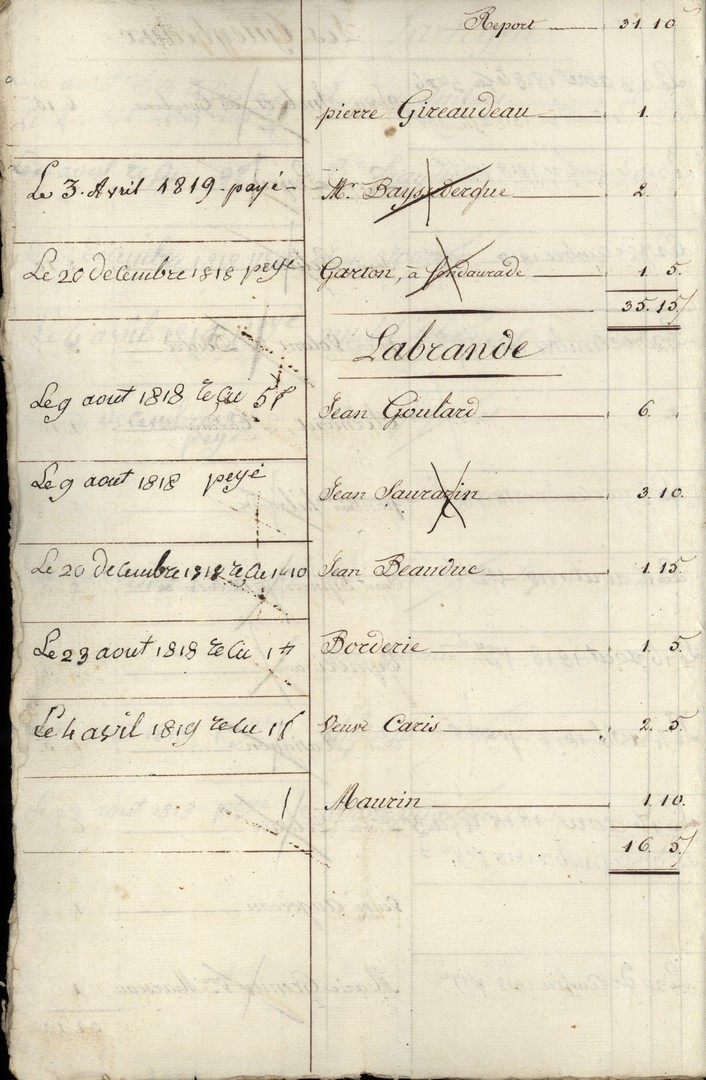 Report 31. 10
pierre Gireaudeau 1.
Le 3. Avril 1819 payé - Mr. Bayssedergue 2.
Le 20 decembre 1818 peyé Garson, à fondaurade 1. 5.
35. 15
Labrande
Le 9 aout 1818 recu 5f Jean Goulard 6.
Le 9 aout 1818 peyé Jean Saurazin 3. 10.
Le 20 decembre 1818 recu 1 10 Jean Beauduc 1. 15.
Le 23 aout 1818 recu 1f Borderie 1. 5.
Le 4 avril 1819 recu 1f Veuve Caris 2. 5.
Maurin 1. 10.
16. 5